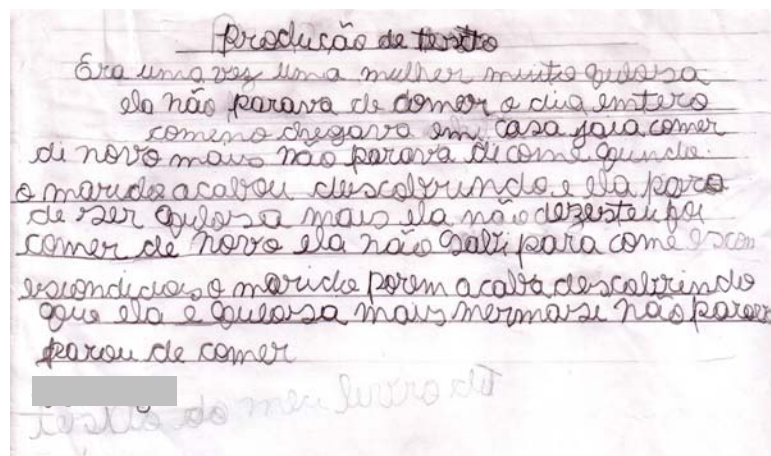 Produção de texto
Era uma vez uma mulher muito gulosa
ela não parava de comer o dia emtero
comeno chegava em casa jaia comer
di novo mais não parava di come quando
o marido acabou descobrindo e ela paro
de ser gulosa mais ela não dezesteu foi
comer de novo ela não sabi para come escon
escondido so o marido porem acaba descobrindo
que ela e gulosa mais mermasi não parou
parou de comer
do meu livro di